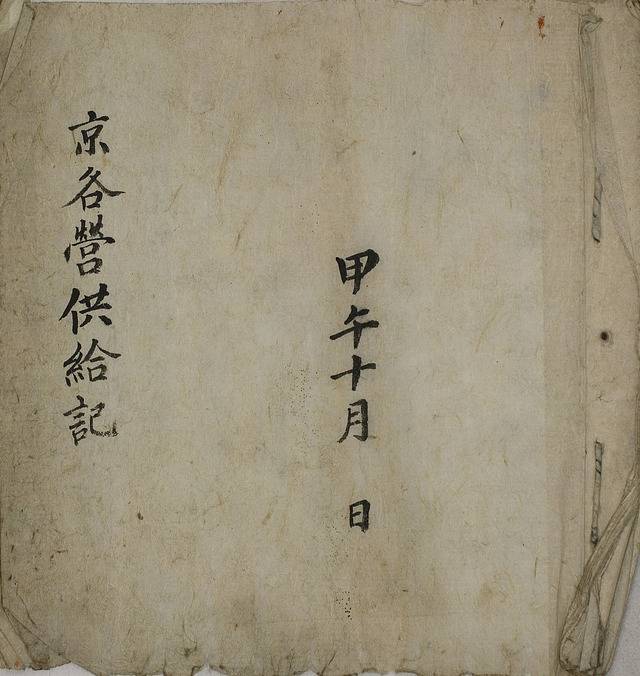 甲午十月　日
京各營供給記